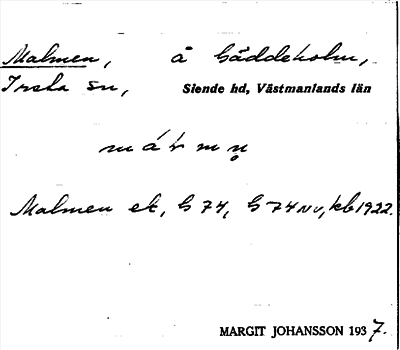 Malmen, å Gäddeholm,
Irsta sn, Siende hd, Västmanlands län
Malmen ek, G 74, G 74 NV, kb 1922.
MARGIT JOHANSSON 1937.